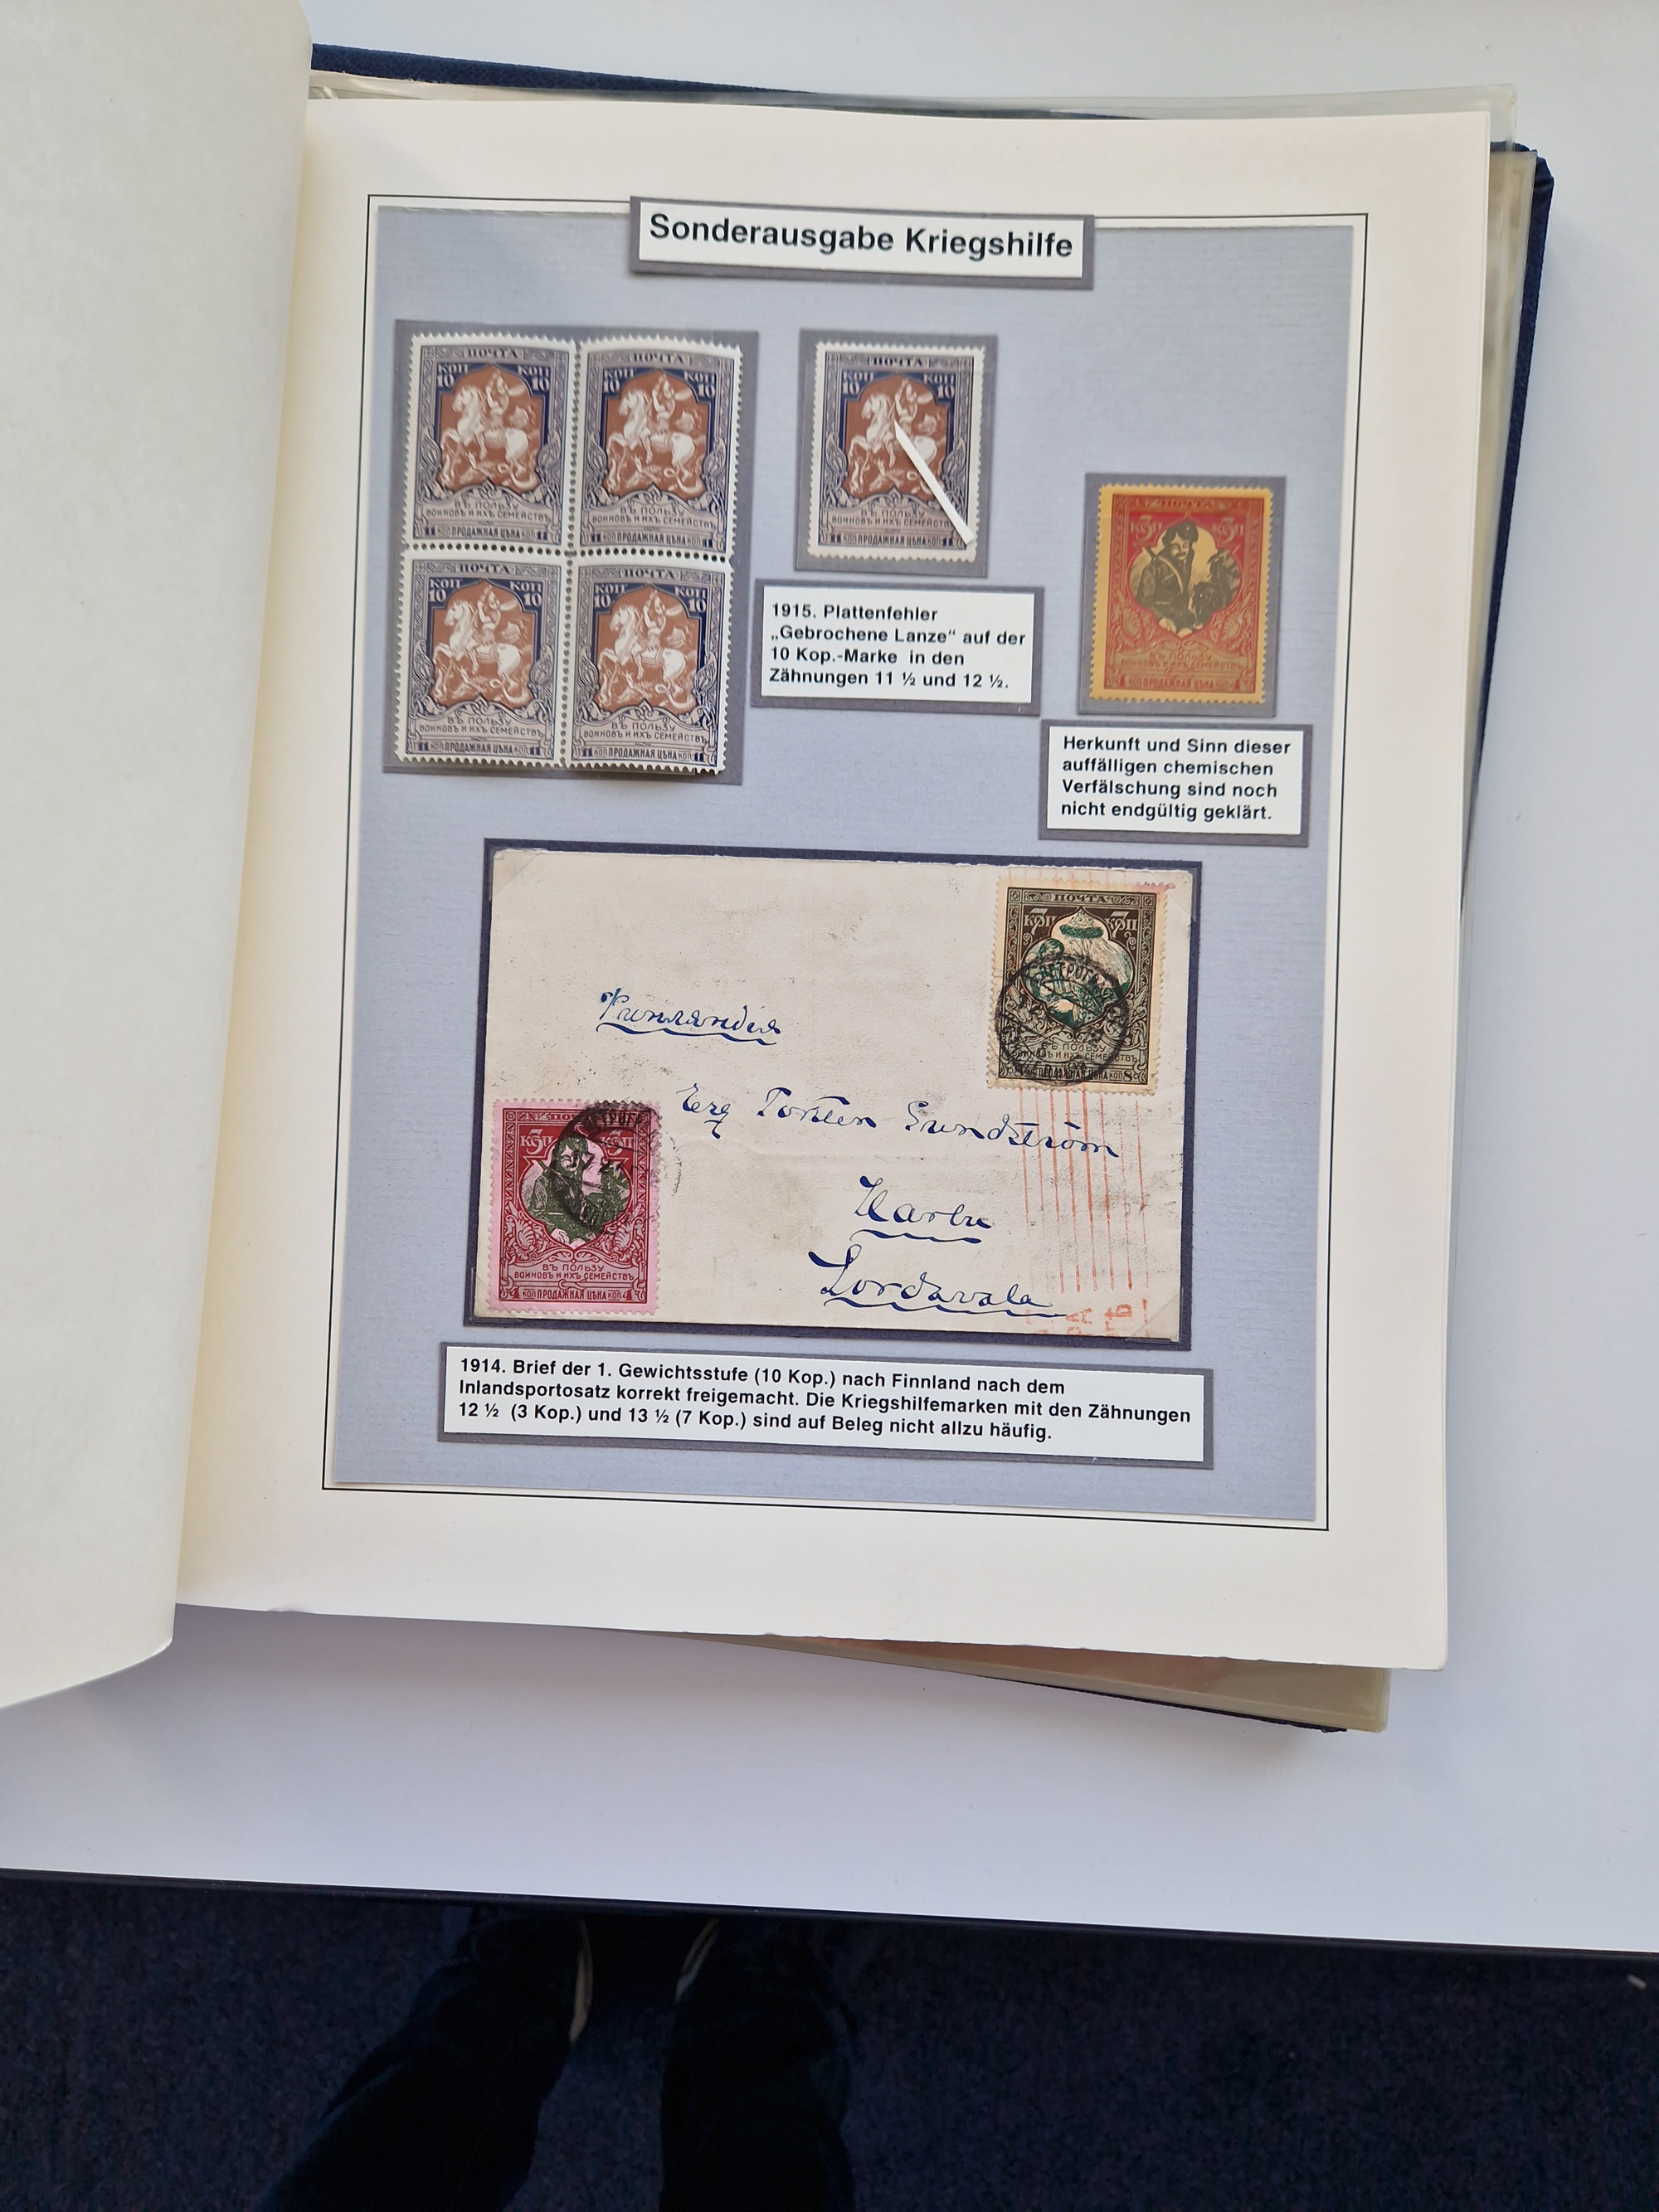 Sonderausgabe Kriegshilfe
ПОЧТА
КОП КОП
10 10
ВЪ ПОЛЬЗУ
ВОИНОВЪ И ИХЪ СЕМЕЙСТВЪ
11 КОП ПРОДАЖНАЯ ЦѢНА КОП 11
ПОЧТА
КОП КОП
10 10
ВЪ ПОЛЬЗУ
ВОИНОВЪ И ИХЪ СЕМЕЙСТВЪ
11 КОП ПРОДАЖНАЯ ЦѢНА КОП 11
ПОЧТА
КОП КОП
10 10
ВЪ ПОЛЬЗУ
ВОИНОВЪ И ИХЪ СЕМЕЙСТВЪ
11 КОП ПРОДАЖНАЯ ЦѢНА КОП 11
ПОЧТА
КОП КОП
10 10
ВЪ ПОЛЬЗУ
ВОИНОВЪ И ИХЪ СЕМЕЙСТВЪ
11 КОП ПРОДАЖНАЯ ЦѢНА КОП 11
ПОЧТА
КОП КОП
10 10
ВЪ ПОЛЬЗУ
ВОИНОВЪ И ИХЪ СЕМЕЙСТВЪ
11 КОП ПРОДАЖНАЯ ЦѢНА КОП 11
1915. Plattenfehler
„Gebrochene Lanze“ auf der
10 Kop.-Marke in den
Zähnungen 11 ½ und 12 ½.
ПОЧТА
К3П К3П
ВЪ ПОЛЬЗУ
ВОИНОВЪ И ИХЪ СЕМЕЙСТВЪ
4 КОП ПРОДАЖНАЯ ЦѢНА КОП 4
Herkunft und Sinn dieser
auffälligen chemischen
Verfälschung sind noch
nicht endgültig geklärt.
ПОЧТА
К7П К7П
ВЪ ПОЛЬЗУ
ВОИНОВЪ И ИХЪ СЕМЕЙСТВЪ
ПРОДАЖНАЯ ЦѢНА КОП 8
Финляндія
Torsten Sundström
Harlu
Sordavala
ПОЧТА
К3П К3П
ВЪ ПОЛЬЗУ
ВОИНОВЪ И ИХЪ СЕМЕЙСТВЪ
4 КОП ПРОДАЖНАЯ ЦѢНА КОП 4
1914. Brief der 1. Gewichtsstufe (10 Kop.) nach Finnland nach dem
Inlandsportosatz korrekt freigemacht. Die Kriegshilfemarken mit den Zähnungen
12 ½ (3 Kop.) und 13 ½ (7 Kop.) sind auf Beleg nicht allzu häufig.